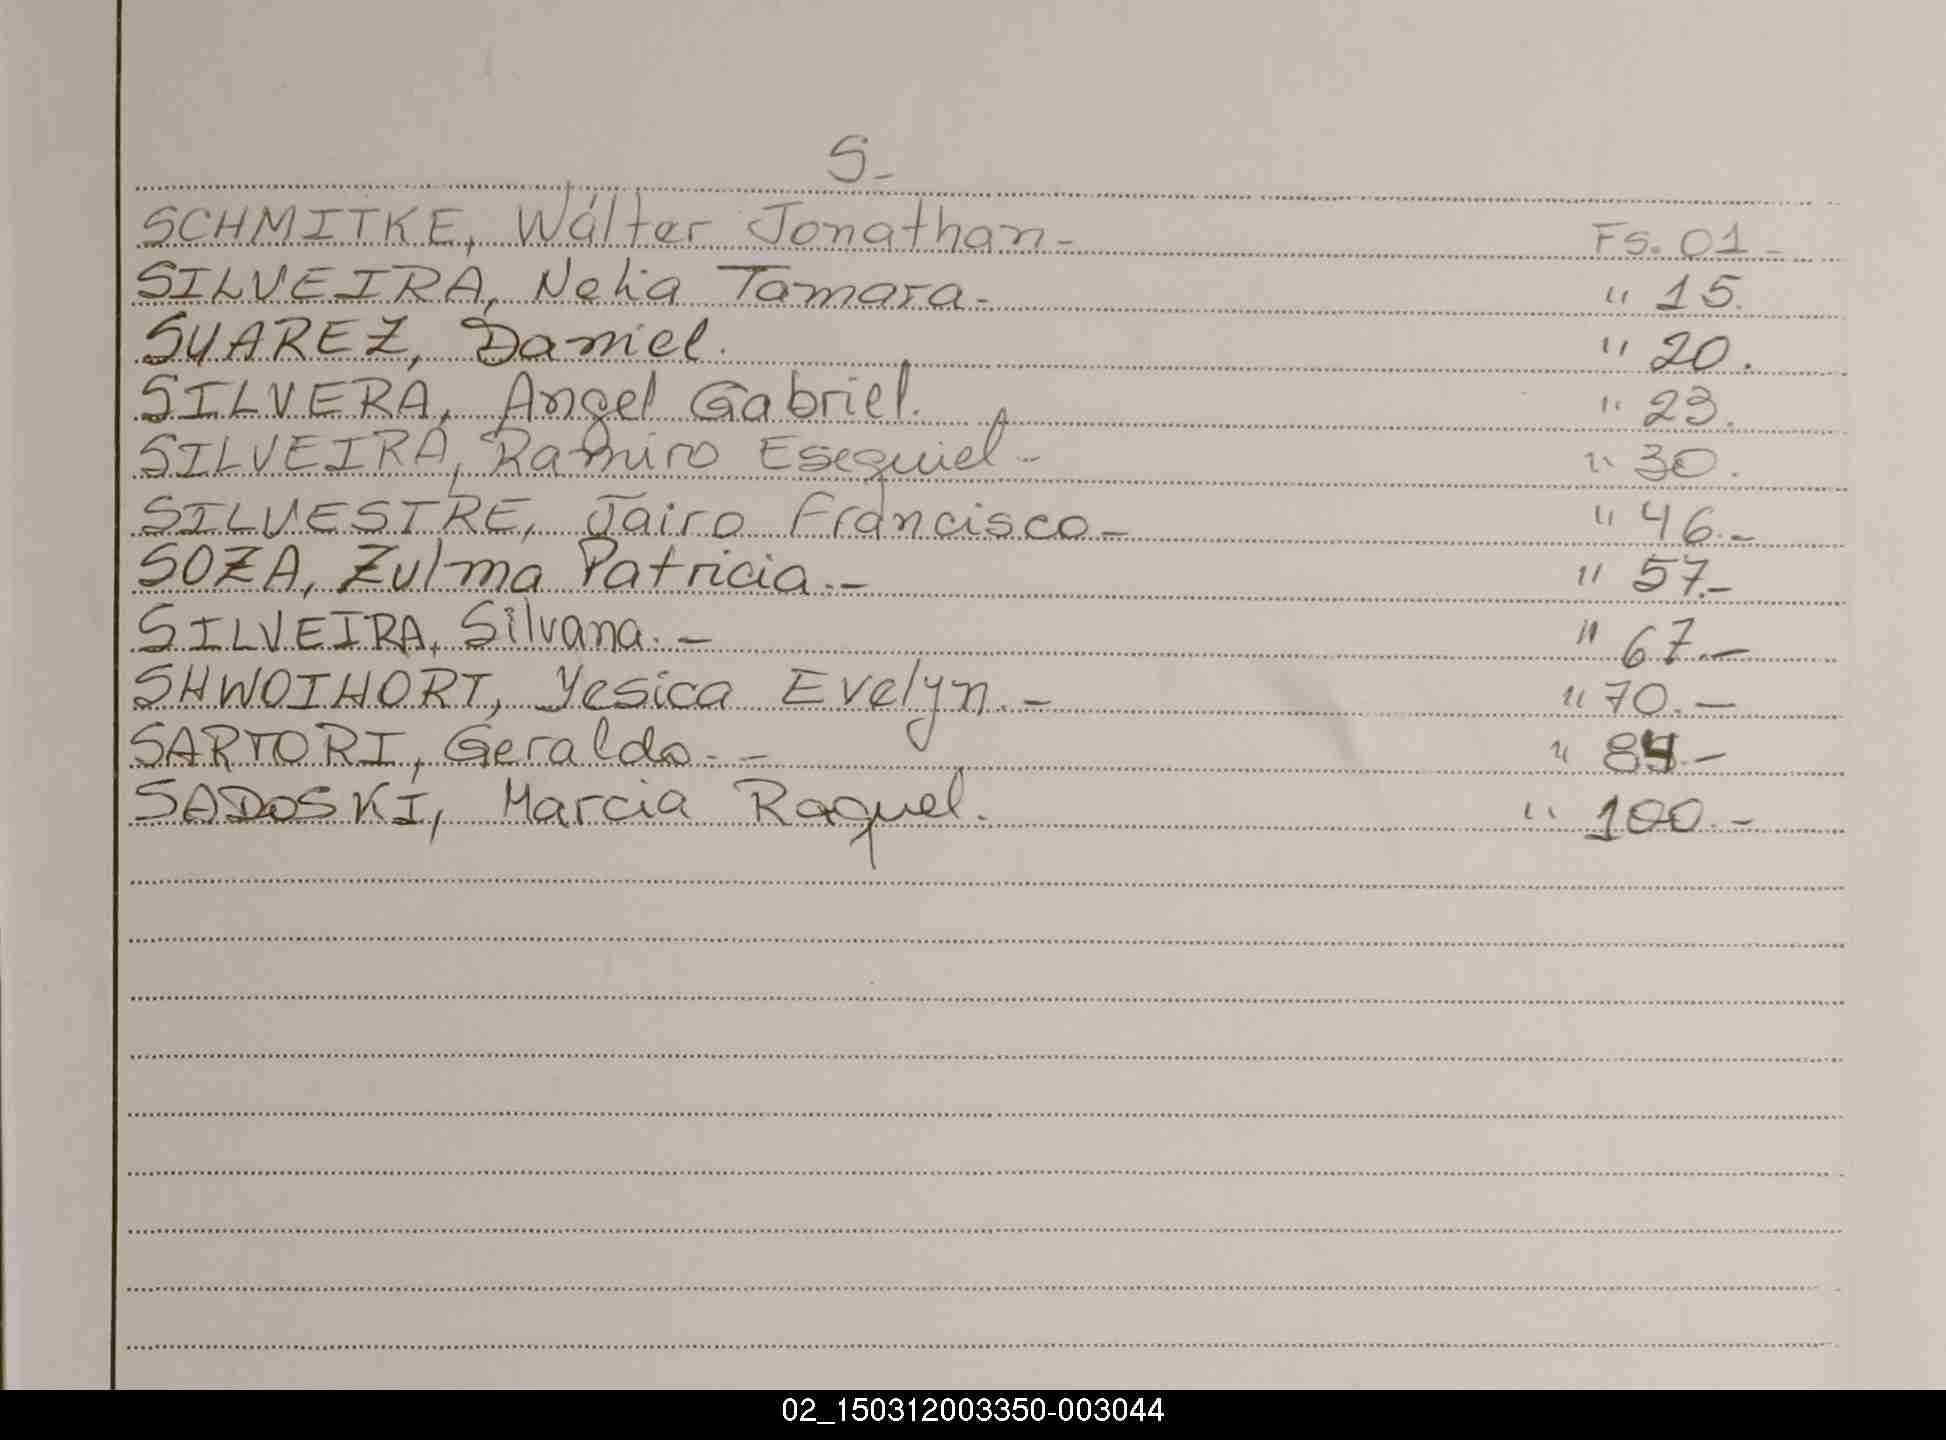 S-
SCHMITKE, Wálter Jonathan- Fs. 01-
SILVEIRA, Nelia Tamara- " 15.
SUAREZ, Daniel. " 20.
SILVERA, Angel Gabriel. " 23.
SILVEIRA, Ramiro Esequiel- " 30.
SILVESTRE, Jairo Francisco- " 46.-
SOZA, Zulma Patricia.- " 57.-
SILVEIRA, Silvana.- " 67.-
SHWOIHORT, Yesica Evelyn.- " 70.-
SARTORI, Geraldo.- " 84.-
SADOSKI, Marcia Raquel. " 100.-
02_150312003350-003044